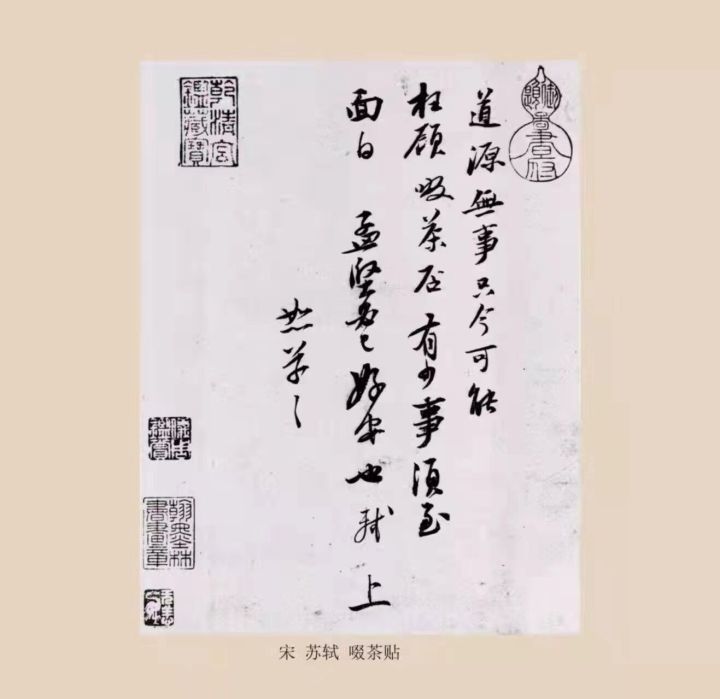 道源無事只今可能
枉顧啜茶否有少事須至
面白 孟堅必已好安也軾上
恕草〻
乾清宮
鑑藏寶
翰墨林
書畫章
宋 苏轼 啜茶贴